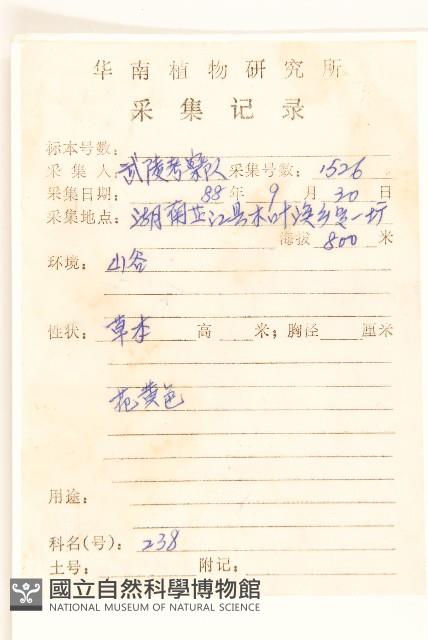 华南植物研究所
采集记录
标本号数：
采集人 武陵考察队 采集号数：1526
采集日期：88年9月30日
采集地点：湖南芷江县木叶溪乡
海拔 800 米
环境：山谷
性状：草本 高 米；胸径 厘米
花黄色
用途：
科名(号)：238
土号： 附记：
國立自然科學博物館
NATIONAL MUSEUM OF NATURAL SCIENCE